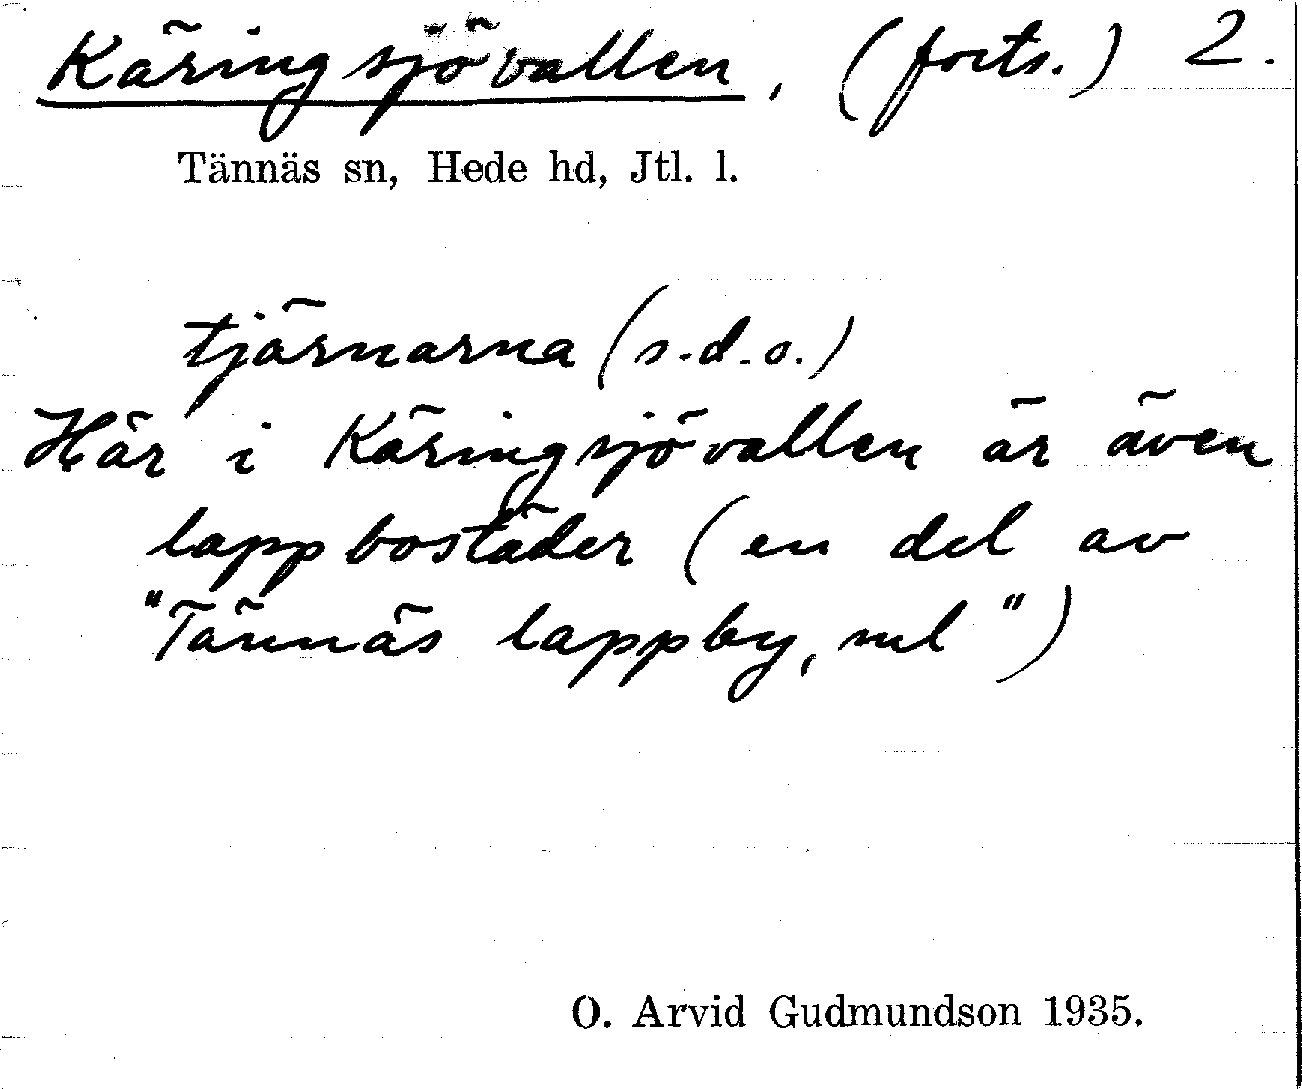 Käringsjövallen, (forts.) 2.
Tännäs sn, Hede hd, Jtl. l.
tjärnarna (s.d.o.)
Här i Käringsjövallen är även
lappbostäder (en del av
"Tännäs lappby, nul")
O. Arvid Gudmundson 1935.